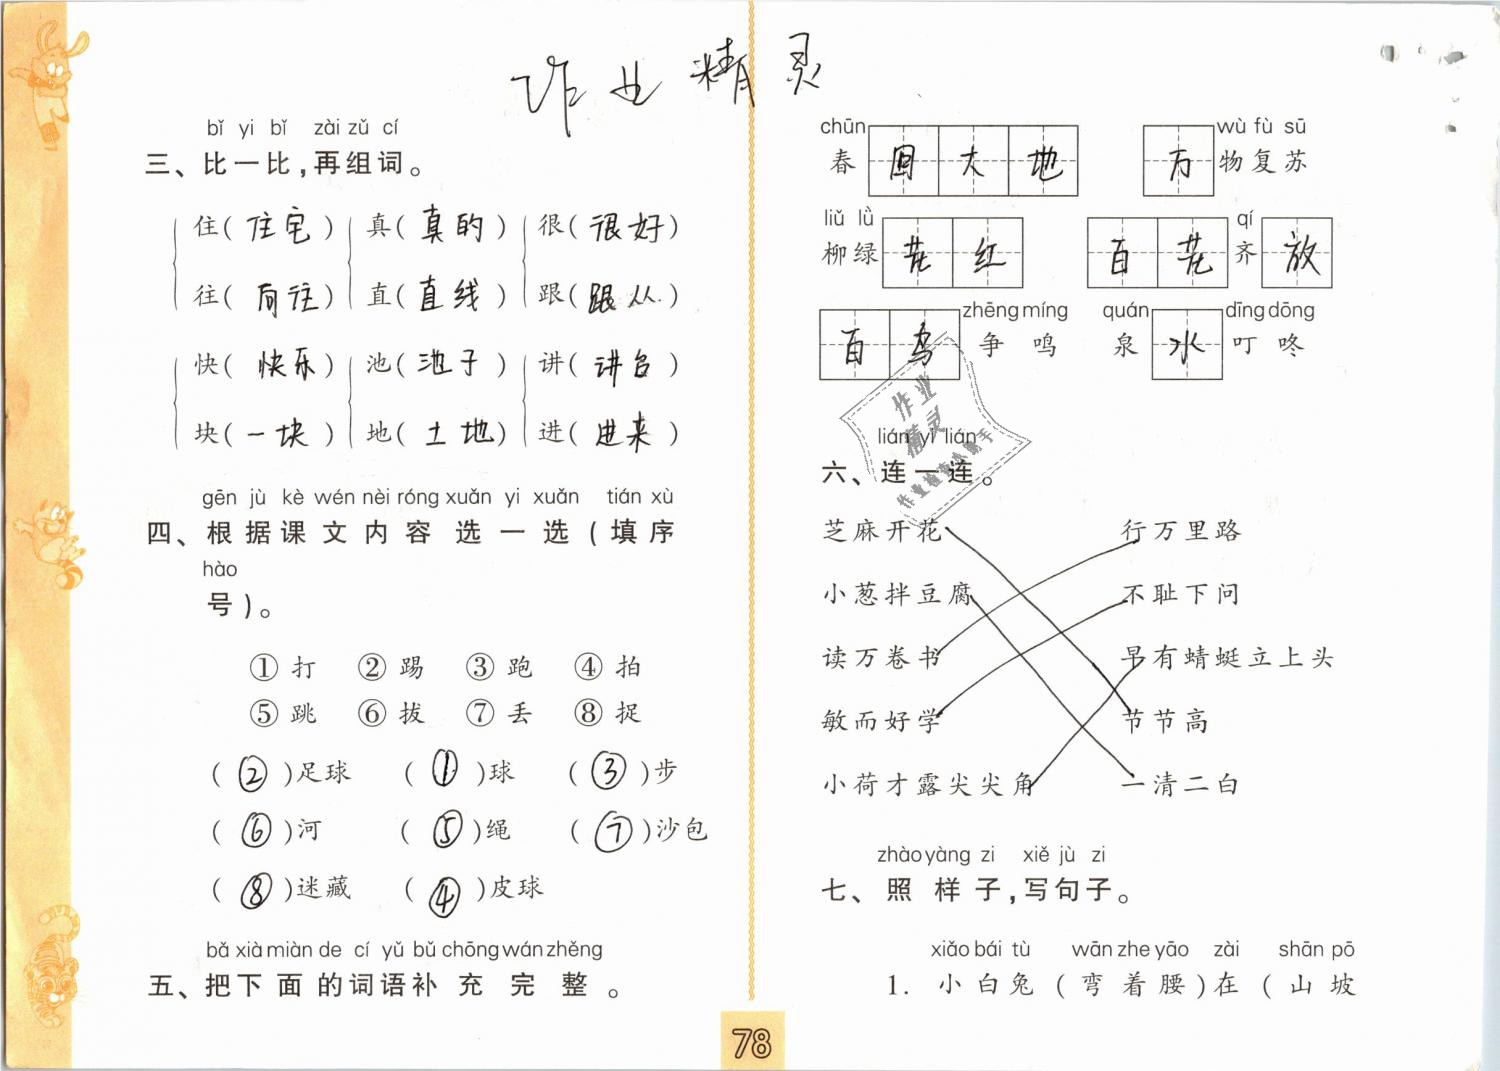 作业精灵
bǐ yi bǐ zài zǔ cí
三、比一比,再组词。
住(住宅) 真(真的) 很(很好)
往(向往) 直(直线) 跟(跟从)
快(快乐) 池(池子) 讲(讲台)
块(一块) 地(土地) 进(进来)
gēn jù kè wén nèi róng xuǎn yi xuǎn tián xù
四、根据课文内容选一选(填序
hào
号)。
①打 ②踢 ③跑 ④拍
⑤跳 ⑥拔 ⑦丢 ⑧捉
(②)足球 (①)球 (③)步
(⑥)河 (⑤)绳 (⑦)沙包
(⑧)迷藏 (④)皮球
bǎ xià miàn de cí yǔ bǔ chōng wán zhěng
五、把下面的词语补充完整。
chūn wù fù sū
春回大地 万物复苏
liǔ lǜ qí
柳绿花红 百花齐放
zhēng míng quán dīng dōng
百鸟争鸣 泉水叮咚
作业
精灵
作业检查小助手
lián yi lián
六、连一连。
芝麻开花 行万里路
小葱拌豆腐 不耻下问
读万卷书 早有蜻蜓立上头
敏而好学 节节高
小荷才露尖尖角 一清二白
zhào yàng zi xiě jù zi
七、照样子,写句子。
xiǎo bái tù wān zhe yāo zài shān pō
1. 小白兔(弯着腰)在(山坡
78